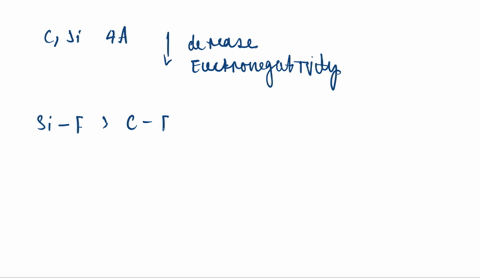 C, Si 4A ↓ derease
Electronegativity
Si-F > C-F